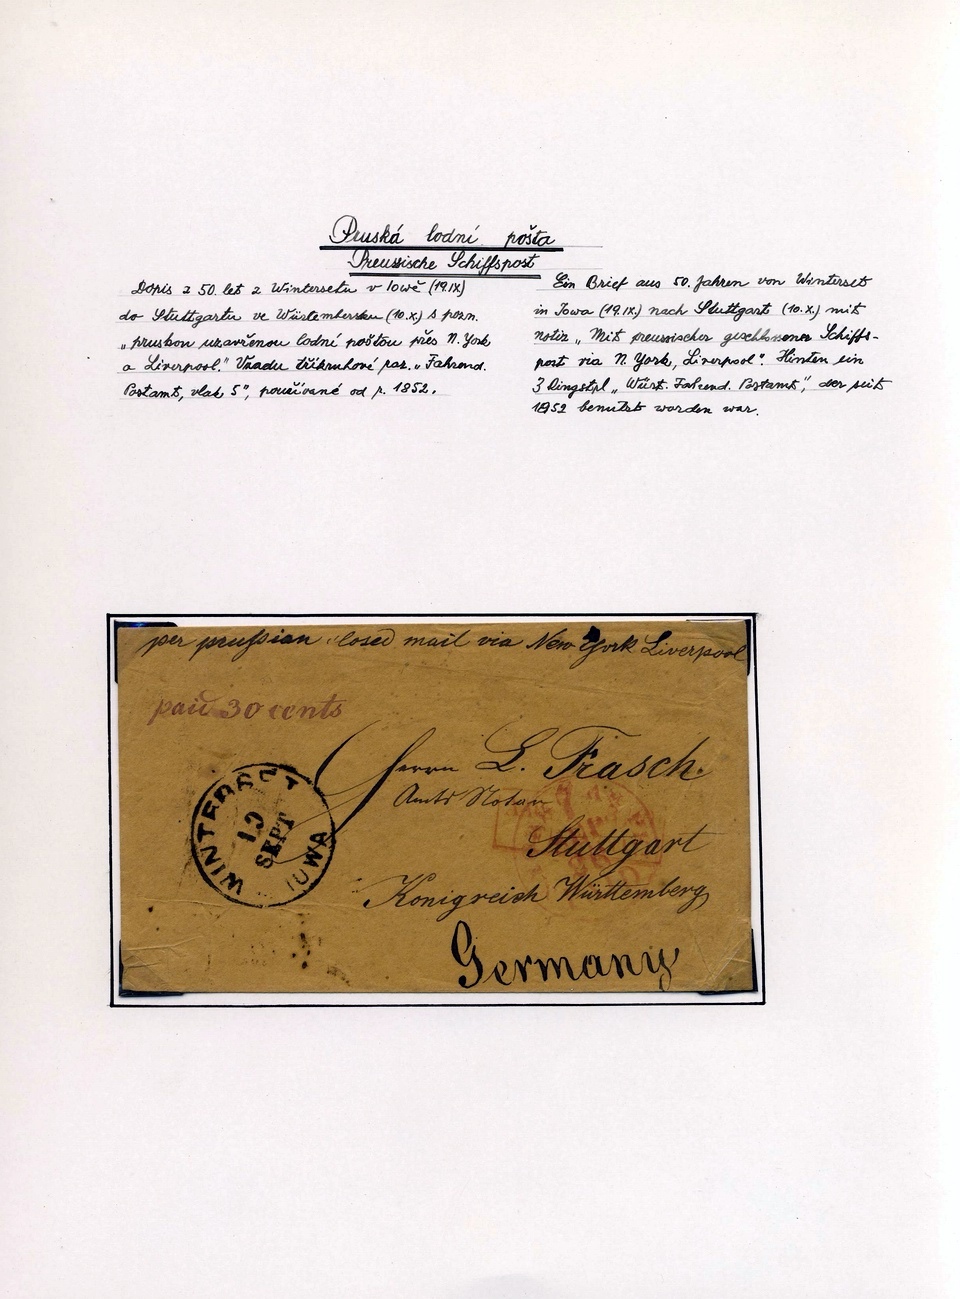 Pruská lodní pošta
Preussische Schiffspost
Dopis z 50. let z Wintersetu v Iowě (19.IX)
do Stuttgartu ve Würtembersku (10.X.) s pozn.
„pruskou uzavřenou lodní poštou přes N. York
a Liverpool.” Vzadu tříkruhové raz. „Fahrend.
Postamt, vlak 5”, používané od r. 1852.
Ein Brief aus 50. Jahren von Winterset
in Iowa (19.IX.) nach Stuttgart (10.X.) mit
notiz „Mit preussischer geschlossener Schiffs-
post via N. York, Liverpool”. Hinten ein
3 Ringstpl „Würt. Fahrend. Postamt”, der seit
1852 benutzt worden war.
per prußian closed mail via New York Liverpool
paid 30 cents
Herrn L. Frasch.
Amts Notar
Stuttgart
Königreich Württemberg
Germany
WINTERSET
19
SEPT
IOWA